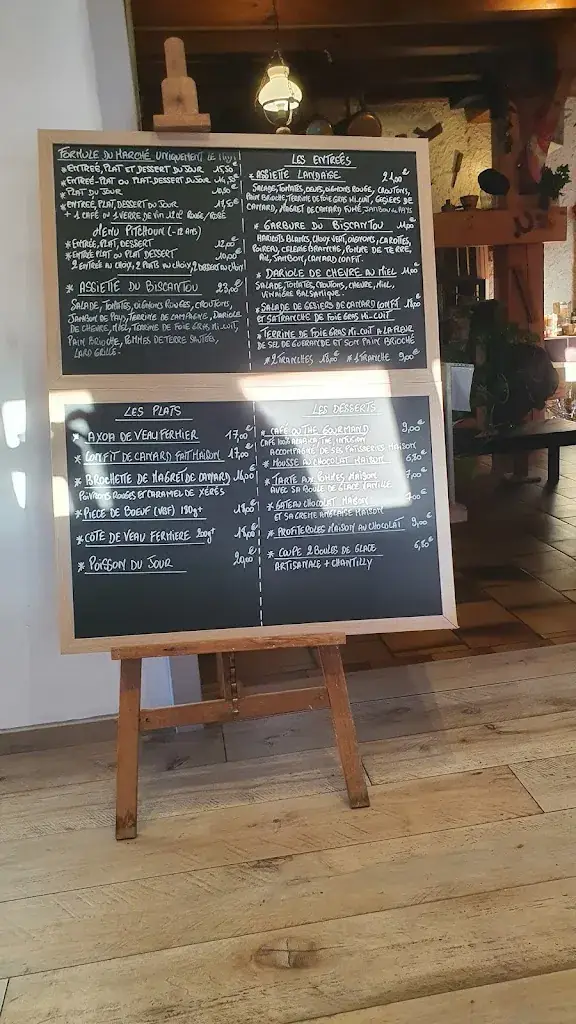 FORMULE DU MARCHÉ UNIQUEMENT LE
* ENTRÉE, PLAT ET DESSERT DU JOUR 15,50€
* ENTRÉE-PLAT OU PLAT-DESSERT DU JOUR
* PLAT DU JOUR 10,50€
* ENTRÉE, PLAT, DESSERT DU JOUR
+ 1 CAFÉ OU 1 VERRE DE VIN ROUGE/ROSÉ
MENU PITCHOUN (-12 ANS)
* ENTRÉE, PLAT, DESSERT 12,00€
* ENTRÉE PLAT OU PLAT DESSERT 10,00€
2 ENTRÉE AU CHOIX, 2 PLATS AU CHOIX, 2 DESSERT AU CHOIX
* ASSIETTE DU BISCANTOU 23,00€
SALADE, TOMATES, OIGNONS ROUGES, CROUTONS,
JAMBON DE PAYS, TERRINE DE CAMPAGNE, DARIOLE
DE CHEVRE, MIEL, TERRINE DE FOIE GRAS MI-CUIT,
PAIN BRIOCHE, POMMES DE TERRE SAUTÉES,
LARD GRILLÉ.
LES ENTRÉES
* ASSIETTE LANDAISE 21,00€
SALADE, TOMATES, OEUFS, OIGNONS ROUGE, CROUTONS,
PAIN BRIOCHE, TERRINE DE FOIE GRAS MI-CUIT, GESIERS DE
CANARD, MAGRET DE CANARD FUMÉ, JAMBON DE PAYS
* GARBURE DU BISCANTOU
HARICOTS BLANCS, CHOUX VERT, OIGNONS, CAROTTES,
POIREAU, CELERIE BRANCHE, POMME DE TERRE,
AIL, JAMBON, CANARD CONFIT.
* DARIOLE DE CHEVRE AU MIEL
SALADE, TOMATES, CROUTONS, CHEVRE, MIEL,
VINAIGRE BALSAMIQUE.
* SALADE DE GESIERS DE CANARD CONFIT
ET SA TRANCHE DE FOIE GRAS MI-CUIT
* TERRINE DE FOIE GRAS MI-CUIT A LA FLEUR
DE SEL DE GUERANDE ET SON PAIN BRIOCHÉ
* 2 TRANCHES 18,00€ * 1 TRANCHE 9,00€
LES PLATS
* AXOA DE VEAU FERMIER 17,00€
* CONFIT DE CANARD FAIT MAISON 17,00€
* BROCHETTE DE MAGRET DE CANARD
POIVRONS ROUGES ET CARAMEL DE XÉRÈS
* PIECE DE BOEUF (VBF) 180g+
* COTE DE VEAU FERMIERE 200g+
* POISSON DU JOUR 20,00€
LES DESSERTS
* CAFÉ OU THÉ GOURMAND 9,00€
CAFÉ 100% ARABICA, THÉ INFUSION
ACCOMPAGNÉ DE SES PATISSERIES MAISON
* MOUSSE AU CHOCOLAT MAISON
* TARTE AUX POMMES MAISON
AVEC SA BOULE DE GLACE VANILLE
* GATEAU CHOCOLAT MAISON
ET SA CREME ANGLAISE MAISON
* PROFITEROLES MAISON AU CHOCOLAT 9,00€
* COUPE 2 BOULES DE GLACE
ARTISANALE + CHANTILLY